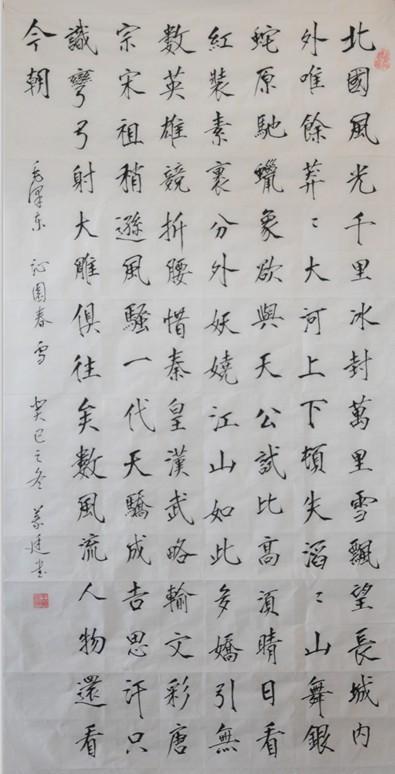 北國風光千里冰封萬里雪飄望長城内
外唯餘莽〻大河上下頓失滔〻山舞銀
蛇原馳蠟象欲與天公試比高須晴日看
紅裝素裹分外妖嬈江山如此多嬌引無
數英雄競折腰惜秦皇漢武略輸文彩唐
宗宋祖稍遜風騷一代天驕成吉思汗只
識彎弓射大雕俱往矣數風流人物還看
今朝
毛澤东 沁園春 雪 癸巳之冬 书